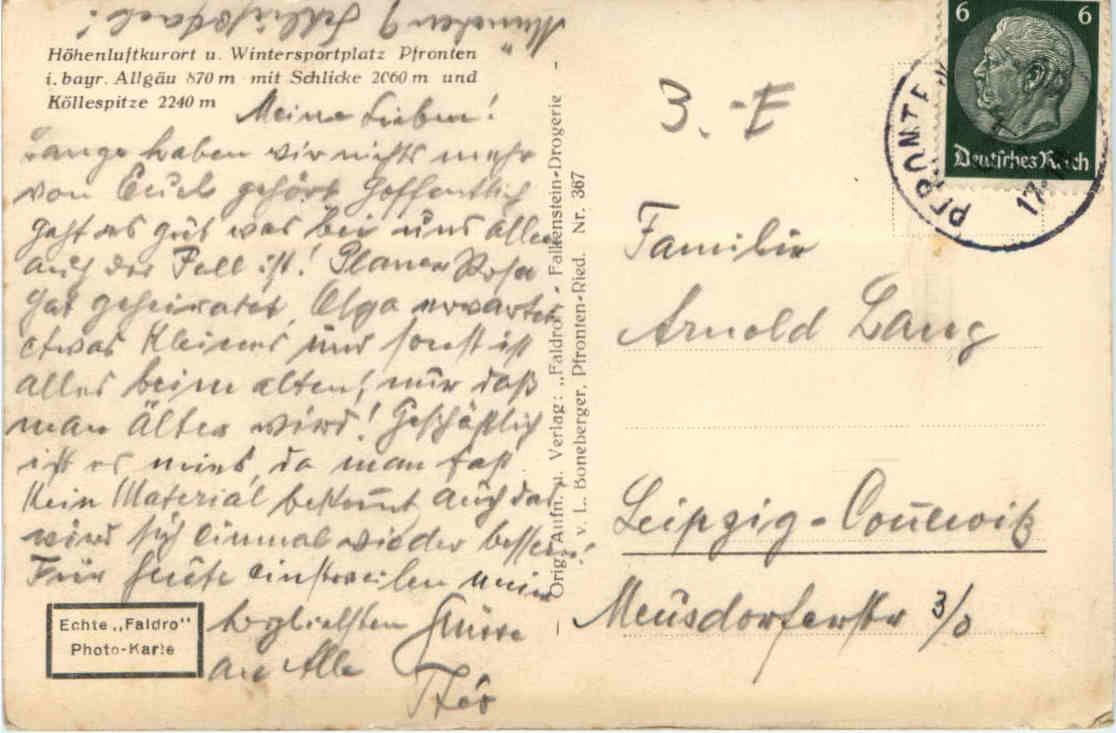 München 9
Höhenluftkurort u. Wintersportplatz Pfronten
i. bayr. Allgäu 870 m mit Schlicke 2060 m und
Köllespitze 2240 m
Meine Lieben!
Lange haben wir nichts mehr
von Euch gehört hoffentlich
geht es gut was bei uns allen
auch der Fall ist! Rosa
hat geheiratet, Olga erwartet
etwas Kleines und sonst ist
alles beim alten, nur daß
man älter wird! Geschäftlich
ist es mies, da man fast
kein Material bekommt auch das
wird sich einmal wieder bessern!
Für heute einstweilen meine
herzlichsten Grüsse
an Alle
Echte „Faldro"
Photo-Karte
Orig. Aufn. u. Verlag: „Faldro" - Falkenstein-Drogerie
v. L. Boneberger, Pfronten-Ried. Nr. 367
3. - E
6 6
Deutsches Reich
PFRONTEN
17.
Familie
Arnold Lang
Leipzig-Connewitz
Meusdorferstr 3/0